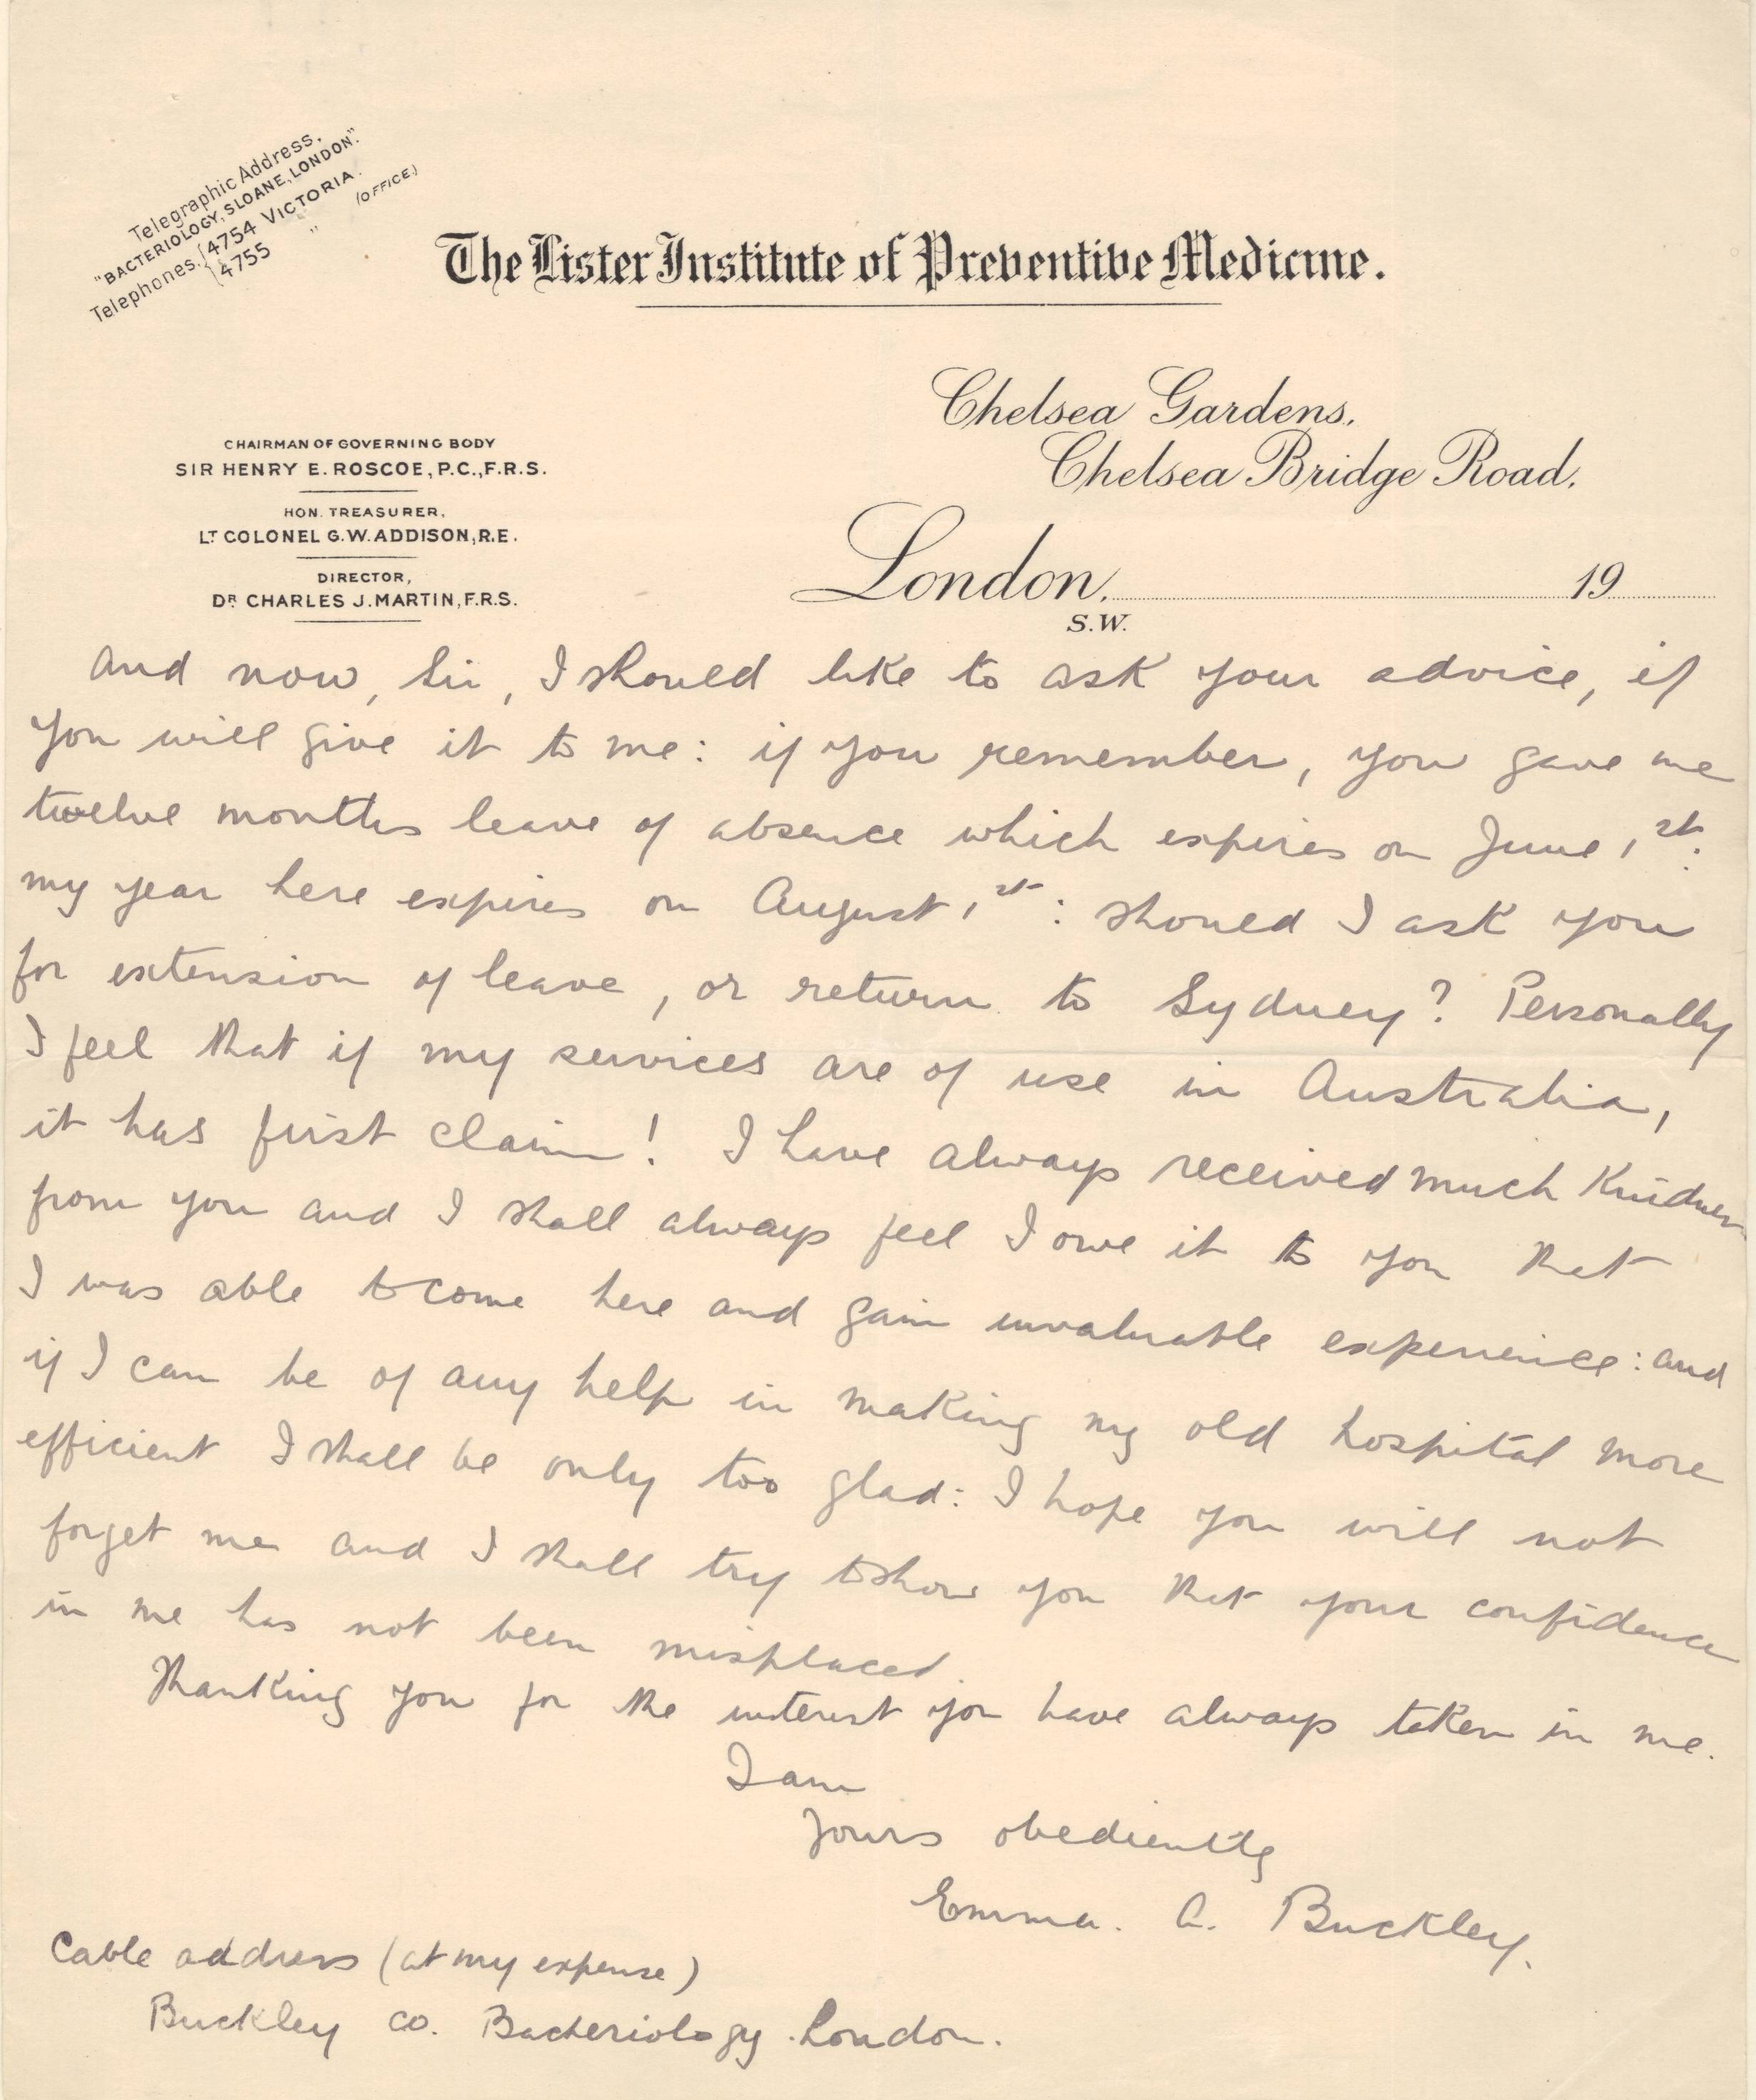 Telegraphic Address,
"BACTERIOLOGY, SLOANE, LONDON".
Telephones. {4754 VICTORIA.
{4755 " (OFFICE.)
The Lister Institute of Preventive Medicine.
Chelsea Gardens,
Chelsea Bridge Road,
CHAIRMAN OF GOVERNING BODY
SIR HENRY E. ROSCOE, P.C., F.R.S.
HON. TREASURER,
LT COLONEL G.W. ADDISON, R.E.
DIRECTOR,
DR CHARLES J. MARTIN, F.R.S.
London, 19
S.W.
And now, Sir, I should like to ask your advice, if
you will give it to me: if you remember, you gave me
twelve months leave of absence which expires on June 1st.
my year here expires on August 1st: should I ask you
for extension of leave, or return to Sydney? Personally
I feel that if my services are of use in Australia,
it has first claim! I have always received much kindness
from you and I shall always feel I owe it to you that
I was able to come here and gain invaluable experience: and
if I can be of any help in making my old hospital more
efficient I shall be only too glad: I hope you will not
forget me and I shall try to show you that your confidence
in me has not been misplaced.
Thanking you for the interest you have always taken in me.
I am
Yours obediently
Emma. A. Buckley.
Cable address (at my expense)
Buckley co. Bacteriology. London.